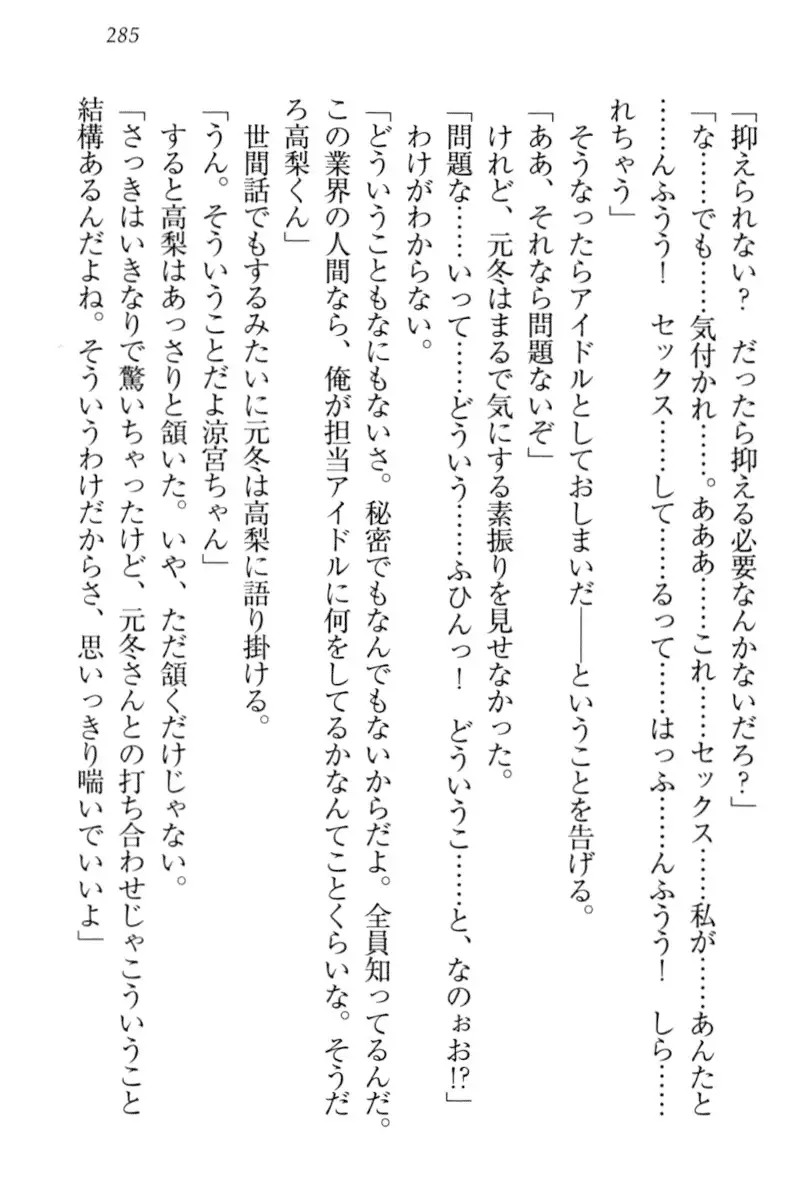 285
「抑えられない？　だったら抑える必要なんかないだろ？」
「な……でも……気付かれ……。あああ……これ……セックス……私が……あんたと
……んふうう！　セックス……して……るって……はっふ……んふうう！　しら……
れちゃう」
　そうなったらアイドルとしておしまいだ――ということを告げる。
「ああ、それなら問題ないぞ」
　けれど、元冬はまるで気にする素振りを見せなかった。
「問題な……いって……どういう……ふひんっ！　どういうこ……と、なのぉお!?」
　わけがわからない。
「どういうこともなにもないさ。秘密でもなんでもないからだよ。全員知ってるんだ。
この業界の人間なら、俺が担当アイドルに何をしてるかなんてことくらいな。そうだ
ろ高梨くん」
　世間話でもするみたいに元冬は高梨に語り掛ける。
「うん。そういうことだよ涼宮ちゃん」
　すると高梨はあっさりと頷いた。いや、ただ頷くだけじゃない。
「さっきはいきなりで驚いちゃったけど、元冬さんとの打ち合わせじゃこういうこと
結構あるんだよね。そういうわけだからさ、思いっきり喘いでいいよ」